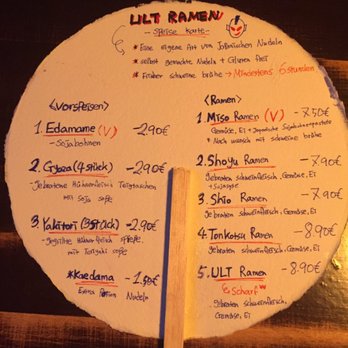 ULT RAMEN
- Speise Karte -
* Eine eigene Art von Japanischen Nudeln
* selbst gemachte Nudeln + Gluten frei
* Frischer Schweine brühe → Mindestens 6 stunden
<Vorspeisen>
1. Edamame (V) -2.90€
- Sojabohnen
2. Gyoza (4 stück) -2.90€
- Gebratene Hühnerfleisch Teigtaschen
mit Soja soße
3. Yakitori (3 stück) -2.90€
- Gegrillte Hühnerfleisch spieße
mit Teriyaki soße
* Kaedama -1.50€
Extra Portion Nudeln
<Ramen>
1. Miso Ramen (V) -7.50€
Gemüse, Ei + Japanische Sojabohnenpaste
* Nach wunsch mit Schweine brühe
2. Shoyu Ramen -7.90€
Gebraten schweinefleisch, Gemüse, Ei
+ Sojasoße
3. Shio Ramen -7.90€
Gebraten schweinefleisch, Gemüse, Ei
4. Tonkotsu Ramen -8.90€
Gebraten schweinefleisch, Gemüse, Ei
5. ULT Ramen -8.90€
Scharf
Gebraten schweinefleisch,
Gemüse, Ei